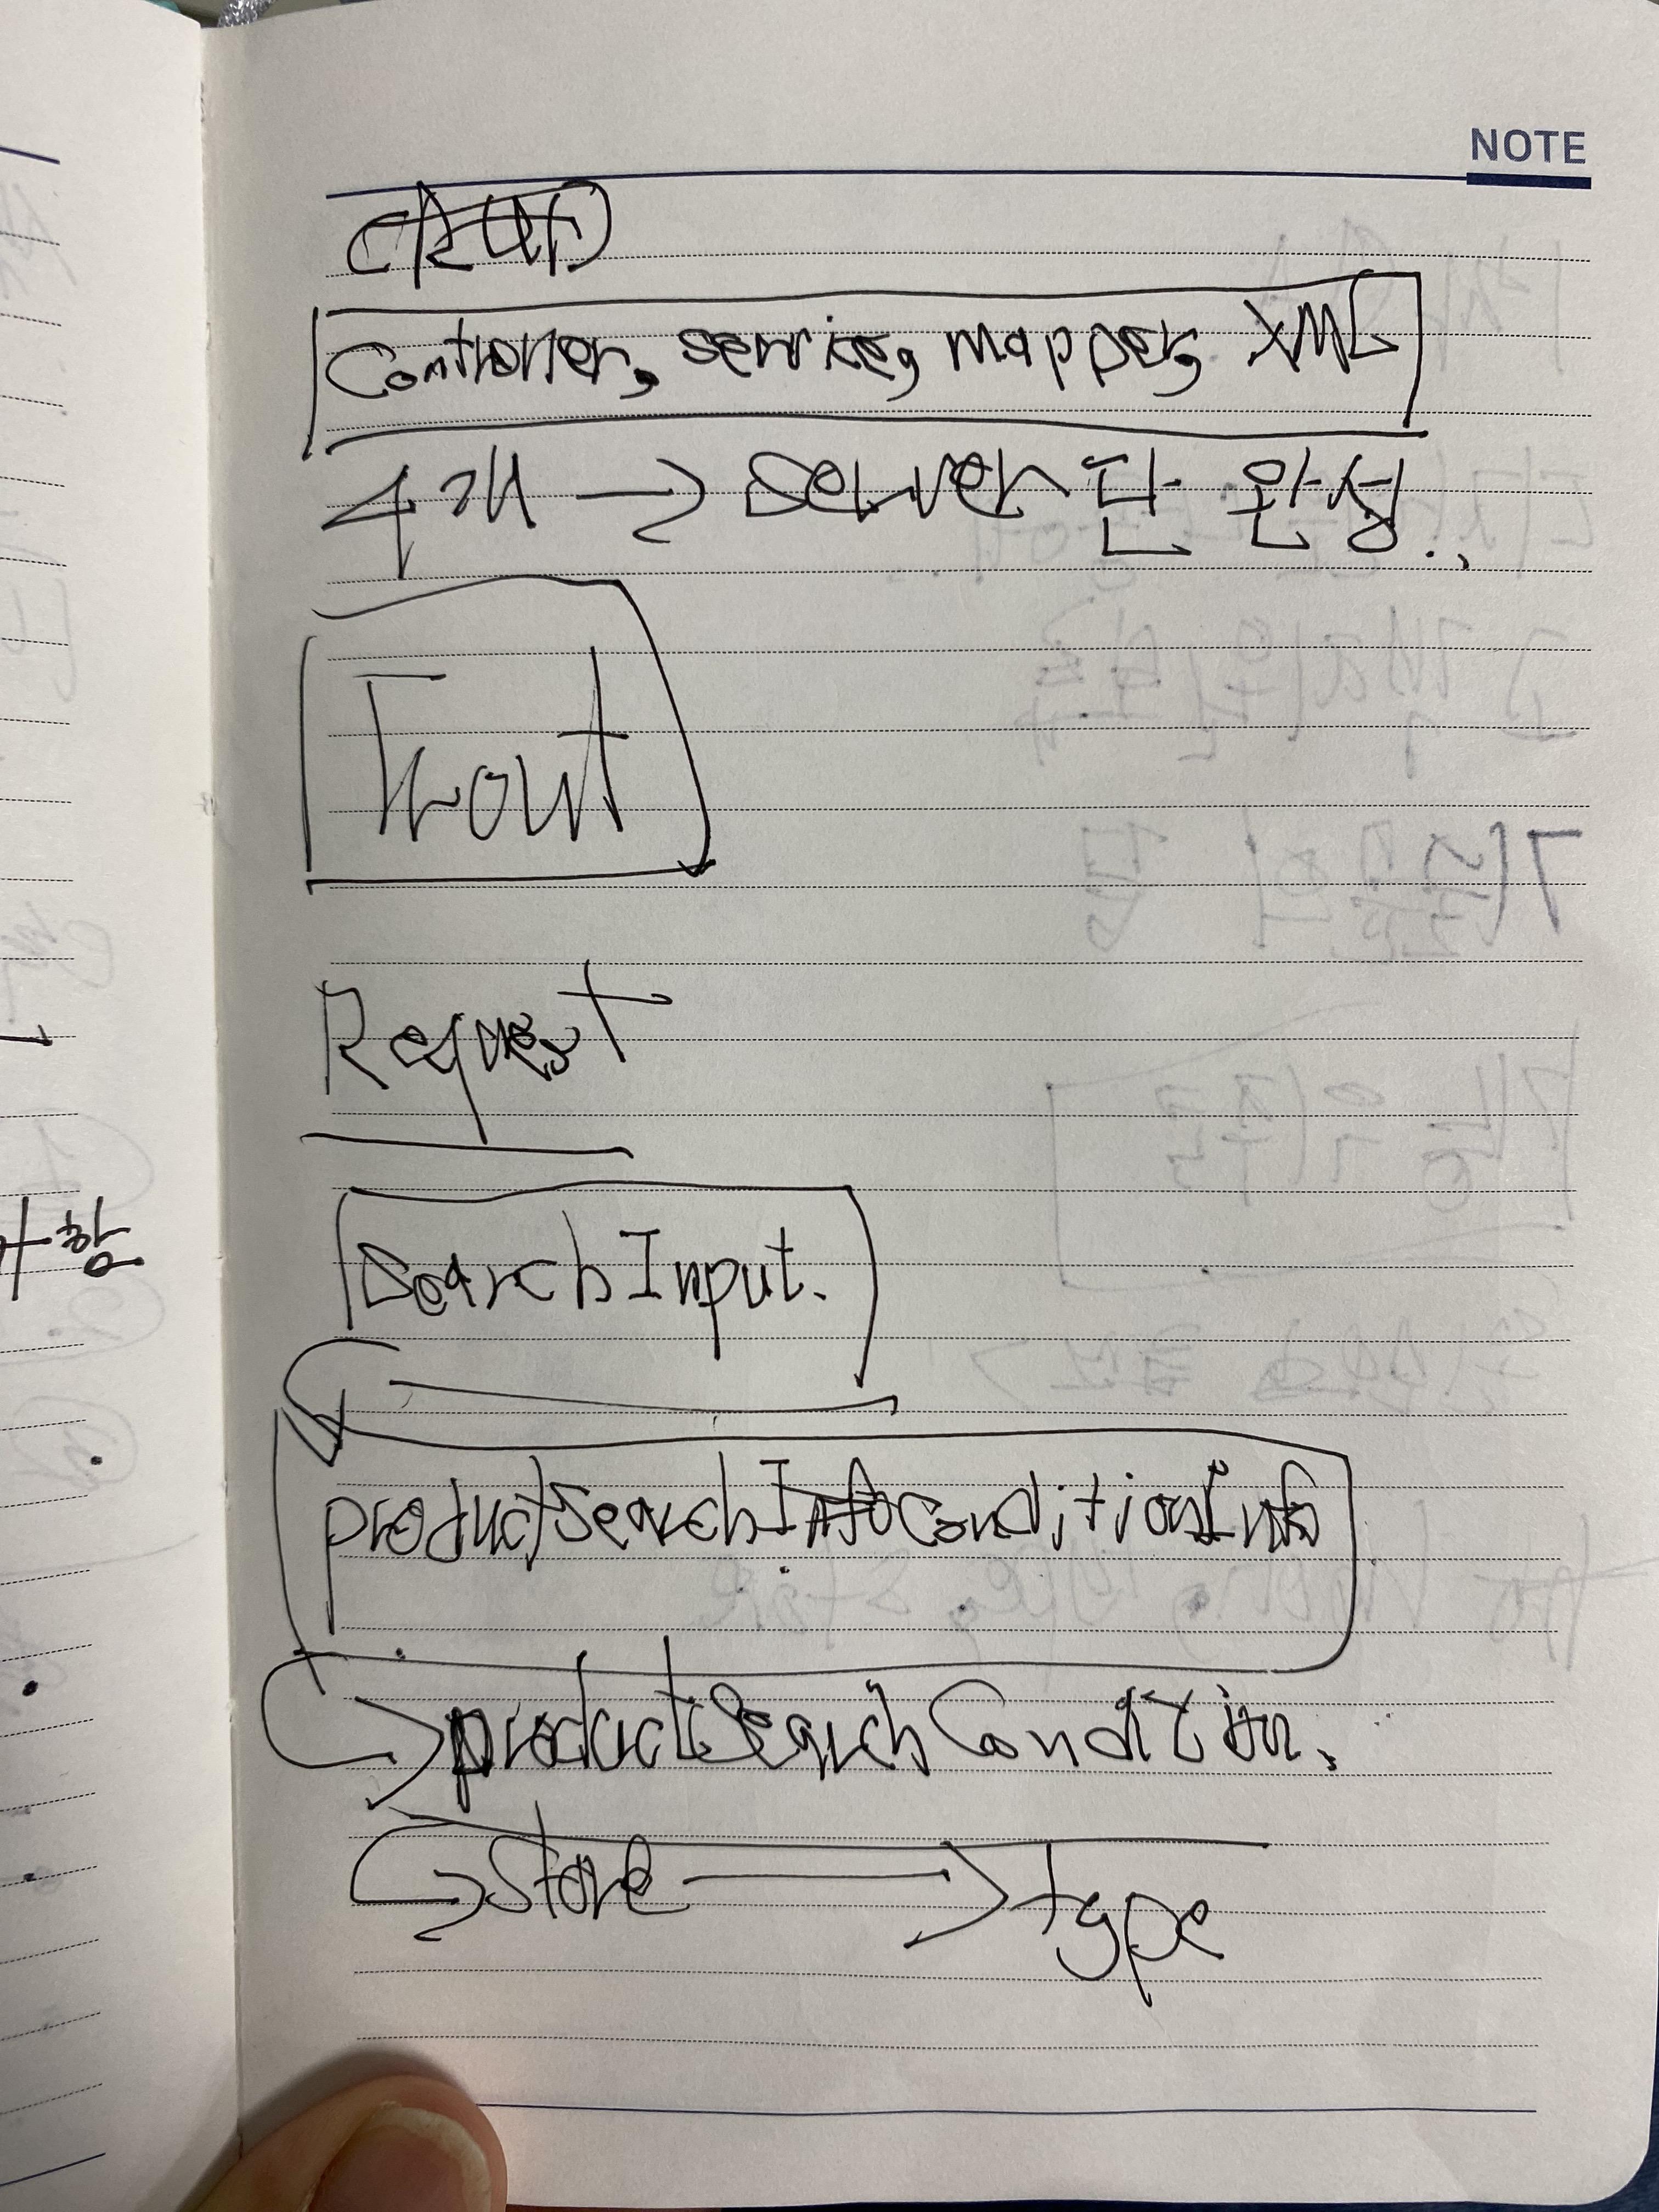 NOTE
Controller, service, mapper, XML
4개 → Server 단 완성..
Front
Request
SearchInput.
productSearchInfoConditionInfo
productSearchCondition.
Store → type
항